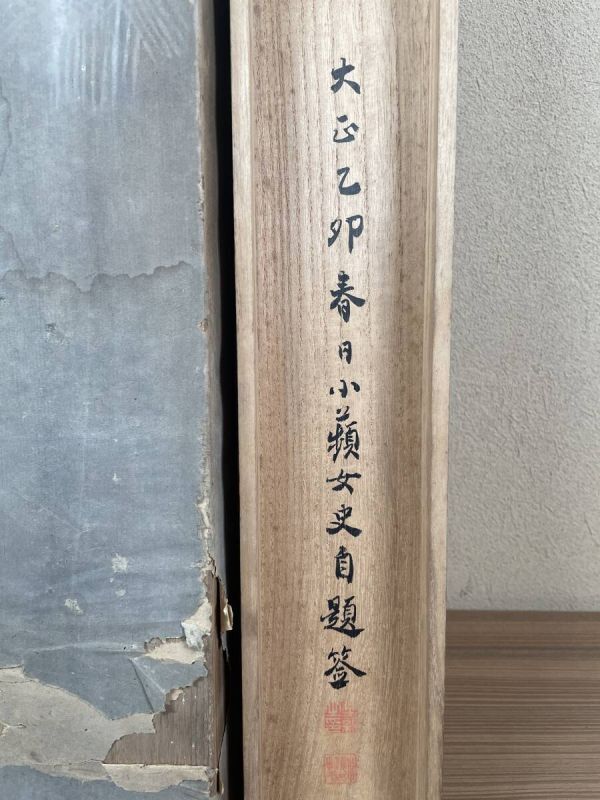 大正乙卯春日小蘋女史自題簽